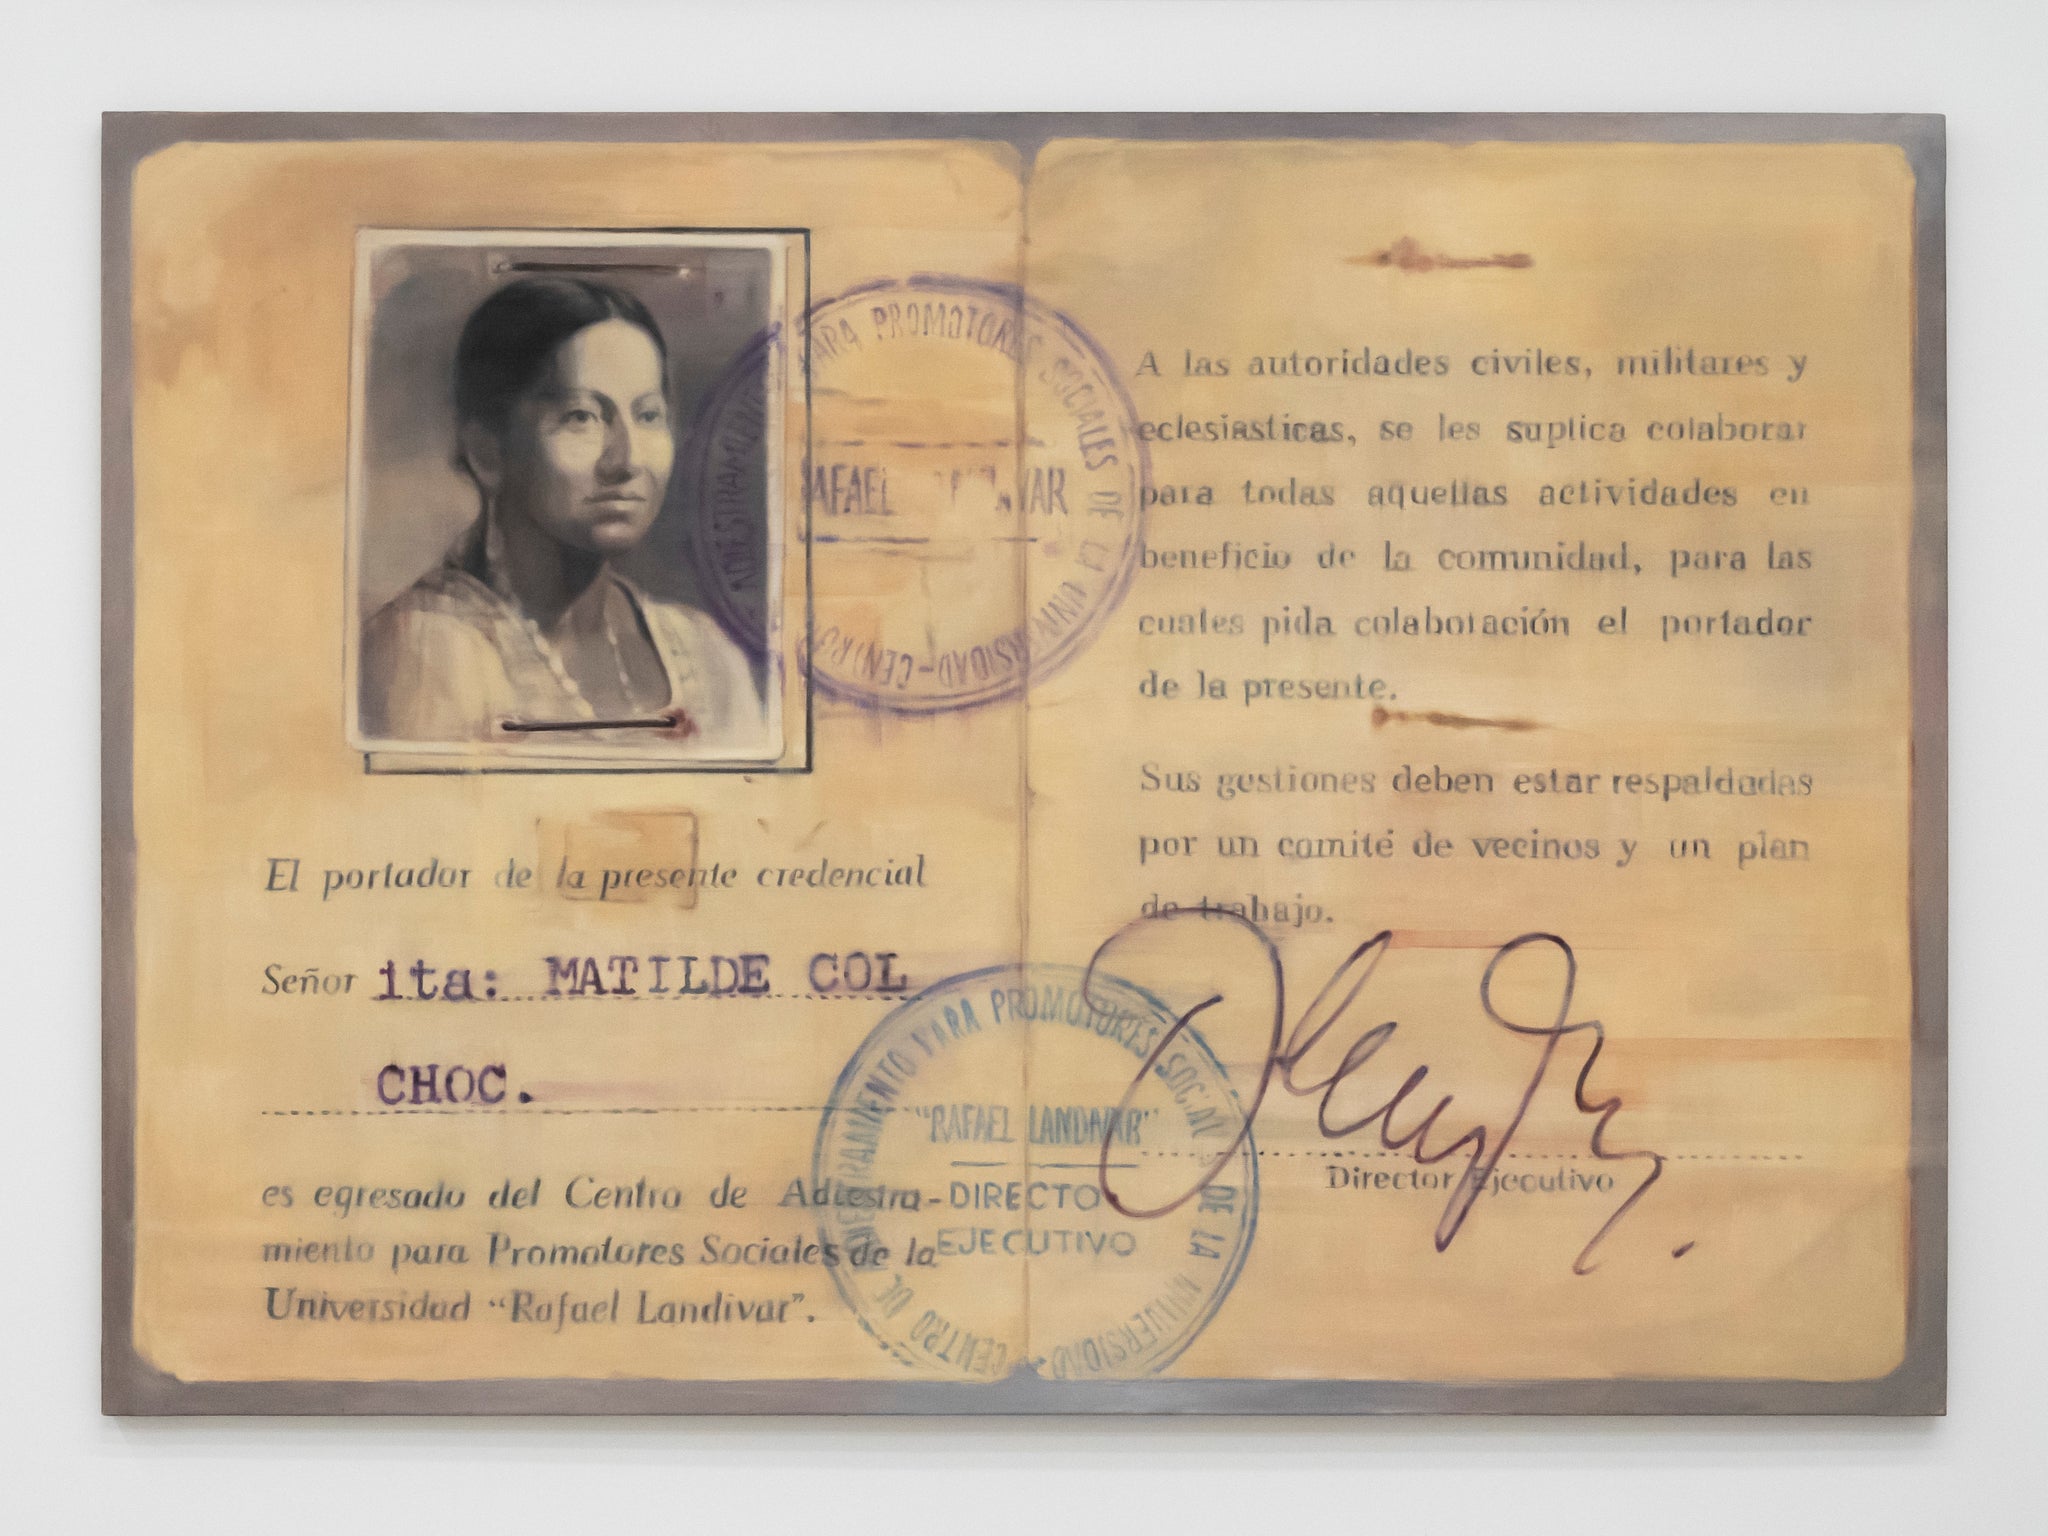 El portador de la presente credencial
Señor ita: MATILDE COL
CHOC.
es egresado del Centro de Adiestra-
miento para Promotores Sociales de la
Universidad “Rafael Landivar”.
PARA PROMOTORES SOCIALES DE LA UNIVERSIDAD-CENTRO
RAFAEL
A las autoridades civiles, militares y
eclesiasticas, se les suplica colaborar
para todas aquellas actividades en
beneficio de la comunidad, para las
cuales pida colaboración el portador
de la presente.
Sus gestiones deben estar respaldadas
por un comité de vecinos y un plan
de trabajo.
Director Ejecutivo
CENTRO DE ADIESTRAMIENTO PARA PROMOTORES SOCIAL DE LA UNIVERSIDAD
“RAFAEL LANDIVAR”
DIRECTO
EJECUTIVO